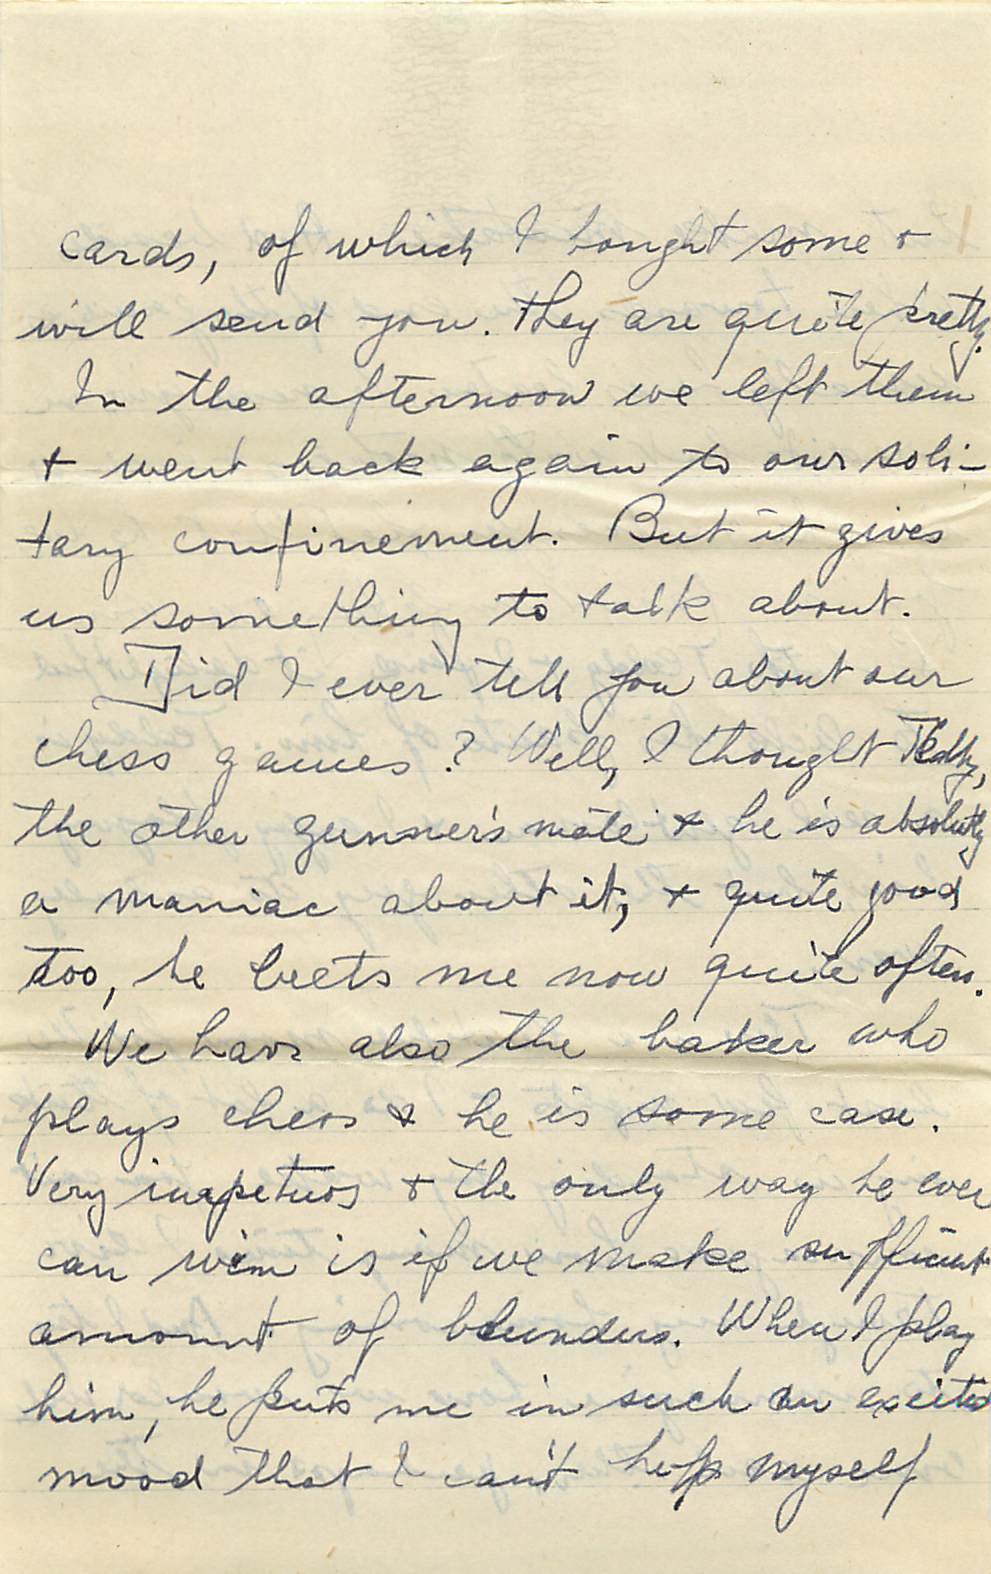 cards, of which I bought some +
will send you. They are quite pretty.
In the afternoon we left them
+ went back again to our soli-
tary confinement. But it gives
us something to talk about.
Did I ever tell you about our
chess games? Well, I thought Teddy,
the other gunner's mate + he is absolutly
a maniac about it, + quite good
too, he beets me now quite often.
We have also the baker who
plays chess & he is some case.
Very impetuos + the only way he ever
can win is if we make sufficient
amount of blunders. When I play
him, he puts me in such an excited
mood that I can't help myself